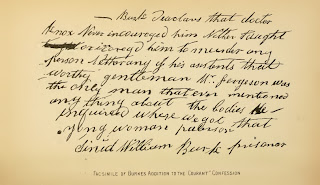 — Burk deaclars that doctor
Knox Never incoureged him Nither taught
or incoreged him to murder any
person Nether any of his asistents that
worthy gentleman Mr. Fergeson was
the only man that ever mentioned
any thing about the bodies He
inquired where we got that
yong woman paterson
Sined William Burk prisoner
FACSIMILE OF BURKE'S ADDITION TO THE "COURANT" CONFESSION